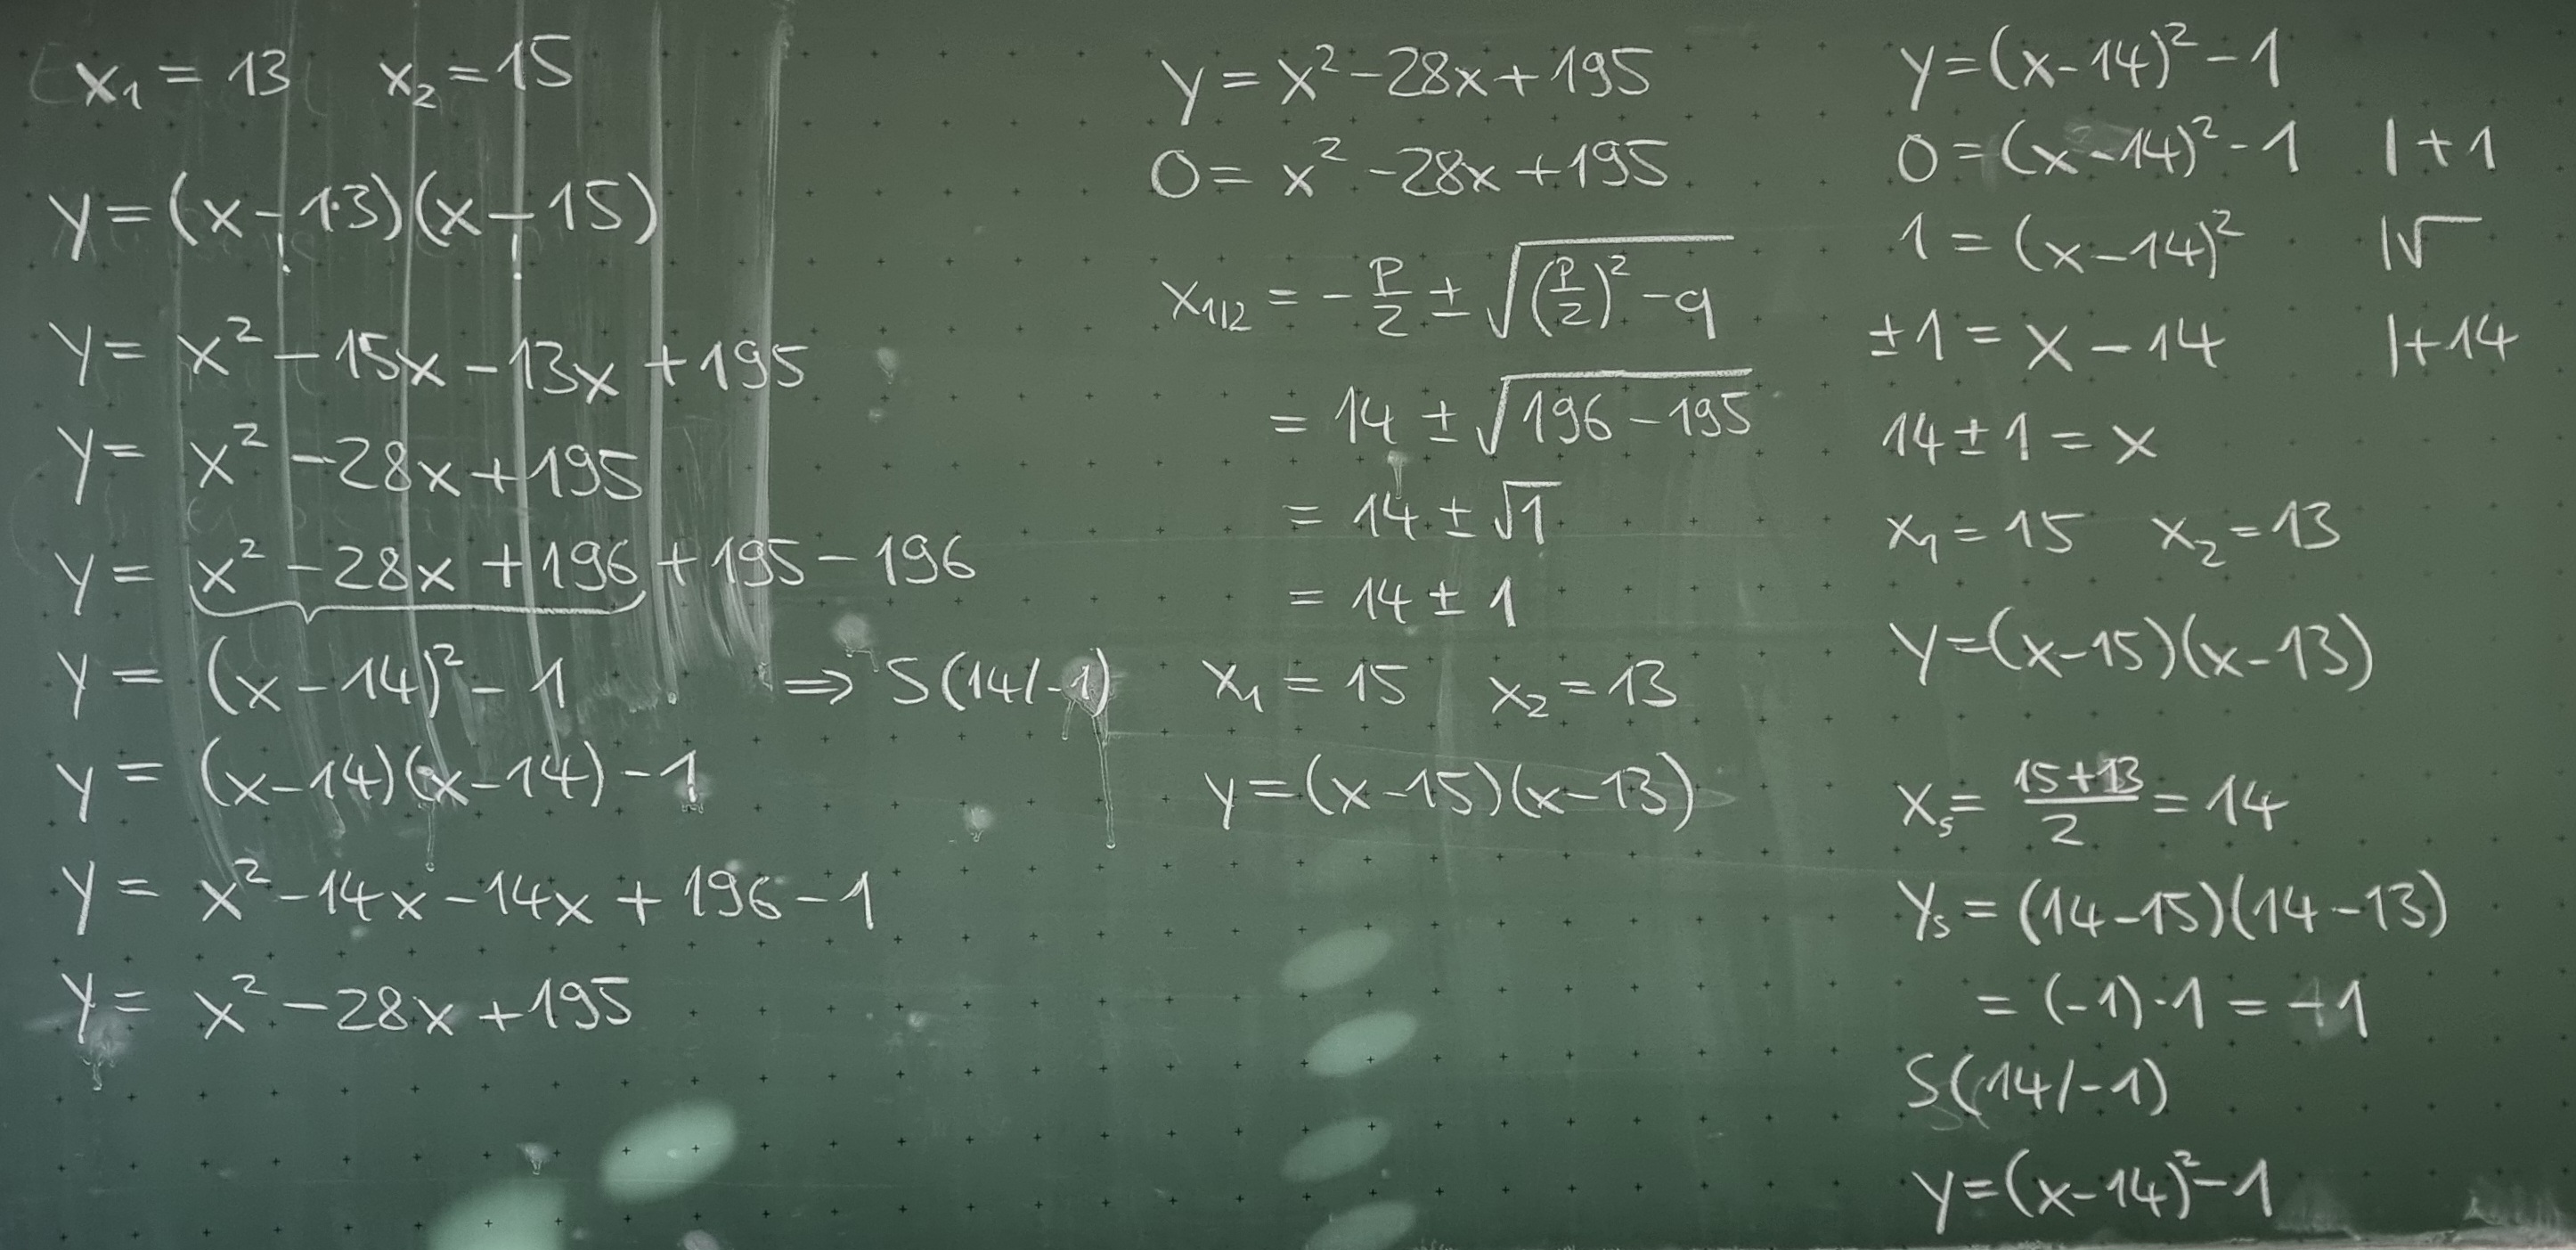 x₁ = 13 x₂ = 15
y = (x - 13)(x - 15)
y = x² - 15x - 13x + 195
y = x² - 28x + 195
y = x² - 28x + 196 + 195 - 196
y = (x - 14)² - 1 ⇒ S(14/-1)
y = (x-14)(x-14) - 1
y = x² - 14x - 14x + 196 - 1
y = x² - 28x + 195
y = x² - 28x + 195
0 = x² - 28x + 195
x₁|₂ = - p/2 ± √((p/2)² - q)
= 14 ± √(196 - 195)
= 14 ± √1
= 14 ± 1
x₁ = 15 x₂ = 13
y = (x - 15)(x - 13)
y = (x-14)² - 1
0 = (x-14)² - 1 | + 1
1 = (x-14)² | √
± 1 = x - 14 | + 14
14 ± 1 = x
x₁ = 15 x₂ = 13
y = (x-15)(x-13)
xₛ = (15+13)/2 = 14
yₛ = (14-15)(14-13)
= (-1)·1 = -1
S(14/-1)
y = (x-14)² - 1